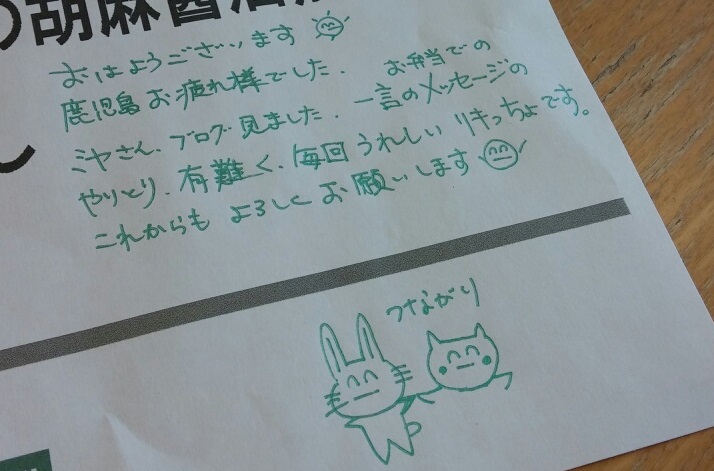 の胡麻醤油
し
おはようございます
鹿児島お疲れ様でした. お弁当での
ミヤさん、ブログ見ました. 一言のメッセージの
やりとり. 有難く、毎回うれしいリキっちょです。
これからもよろしくお願いします
つながり